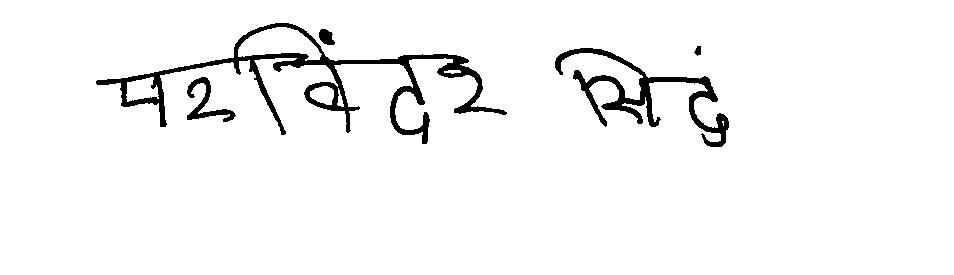 परविंदर सिहं